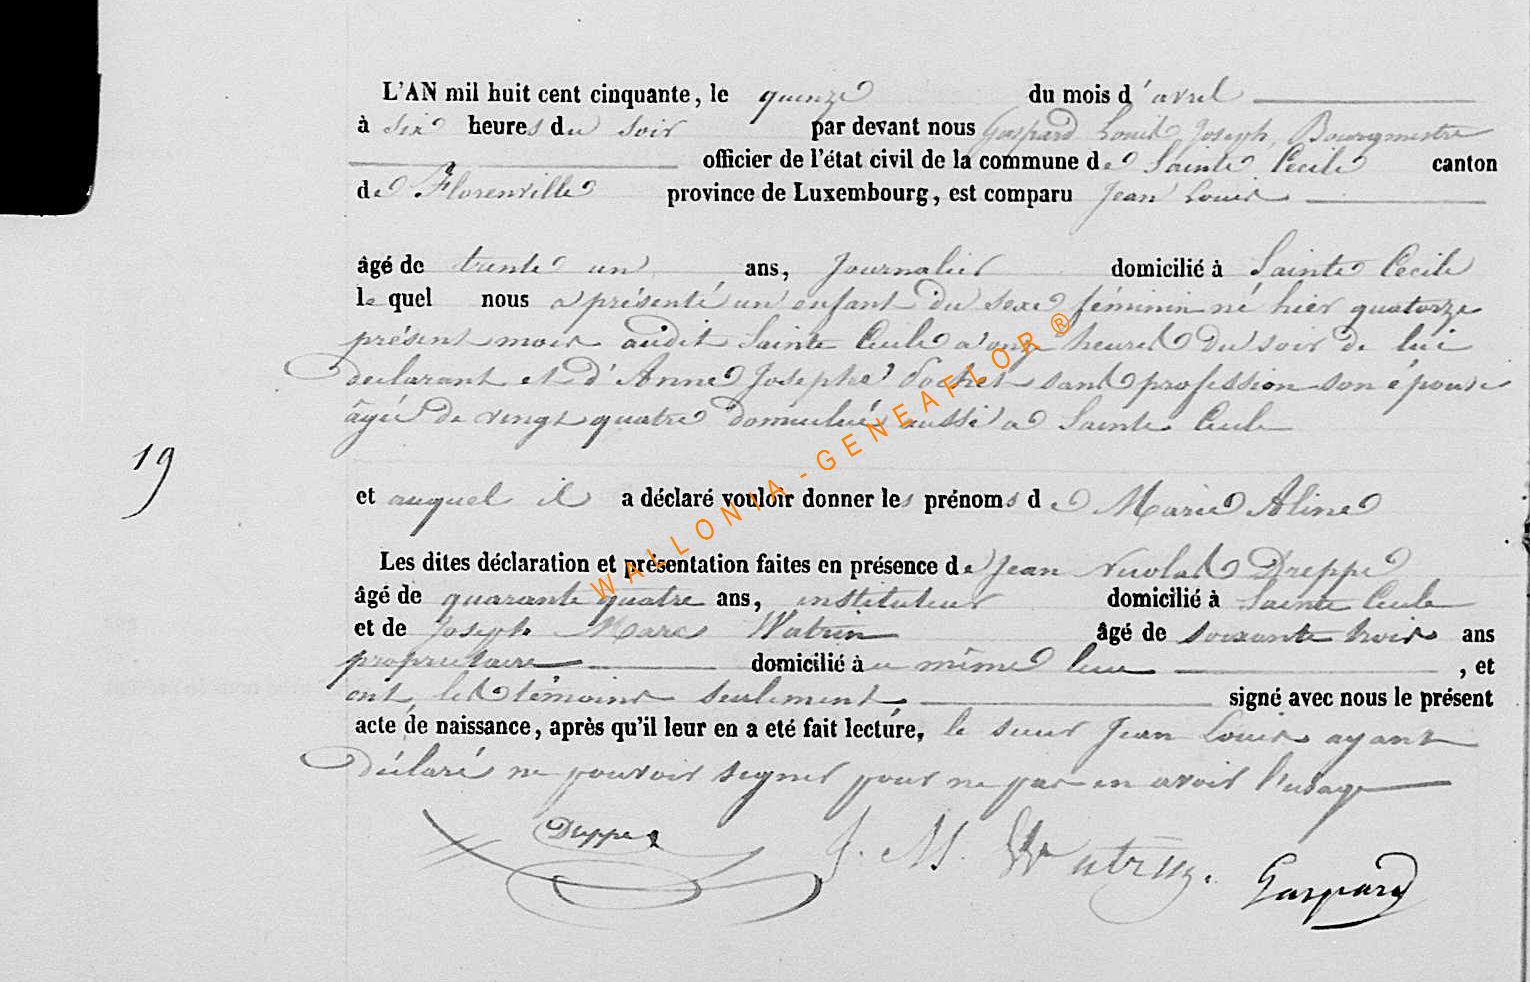 L'AN mil huit cent cinquante, le quinze du mois d'avril
à six heures du soir par devant nous Gaspard Louis Joseph, Bourgmestre
officier de l'état civil de la commune de Sainte Cecile canton
de Florenville province de Luxembourg, est comparu Jean Louis
âgé de trente un ans, Journalier domicilié à Sainte Cecile
le quel nous a présenté un enfant du sexe féminin né hier quatorze
présent mois audit Sainte Cecile a onze heures du soir de lui
déclarant et d'Anne Josephe sans profession son épouse
âgée de vingt quatre domiciliée aussi a Sainte Cecile
19
et auquel il a déclaré vouloir donner les prénoms de Marie Aline
Les dites déclaration et présentation faites en présence de Jean Nicolas Dreppe
âgé de quarante quatre ans, instituteur domicilié à Sainte Cecile
et de Joseph Marc Watrin âgé de soixante trois ans
propriétaire domicilié à même lieu , et
ont les témoins seulement signé avec nous le présent
acte de naissance, après qu'il leur en a eté fait lecture, le sieur Jean Louis ayant
déclaré ne pouvoir signer pour ne pas en avoir l'usage
Dreppe J. M. Watrin. Gaspard
WALLONIA-GENEAFLOR®